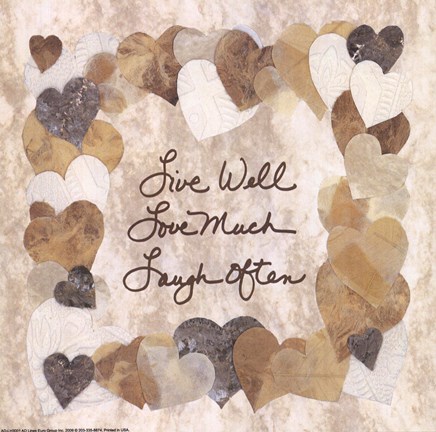 Live Well
Love Much
Laugh Often